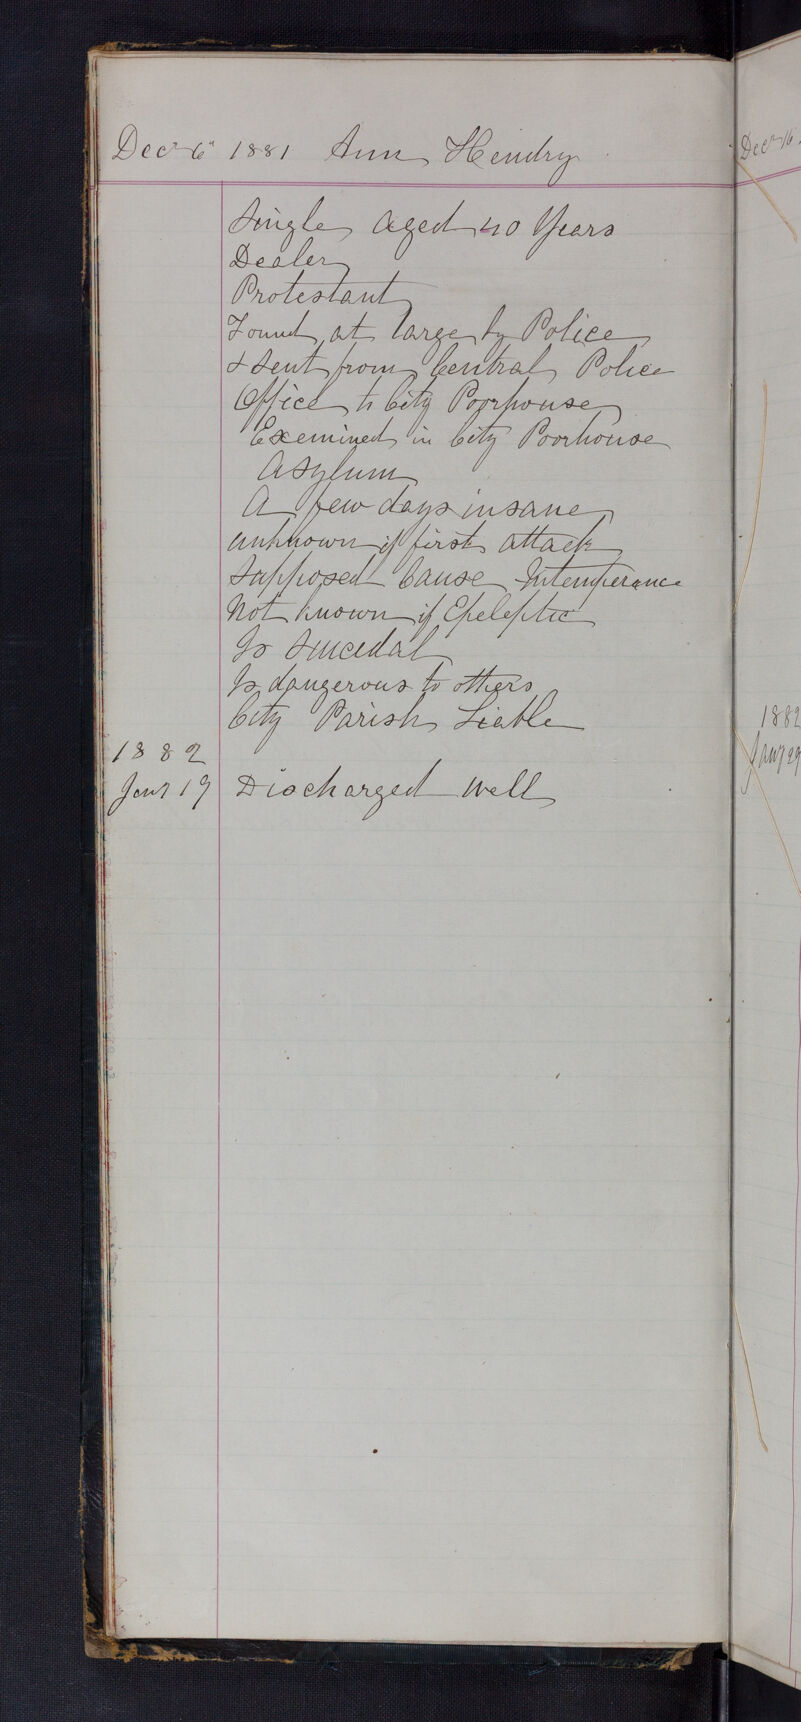 Decr 6th 1881 Ann Hendry
Single aged 40 Years
Dealer
Protestant
Found at large by Police
& Sent from Central Police
Office to City Poorhouse
Examined in City Poorhouse
Asylum
A few days insane
unknown if first attack
Supposed Cause Intemperance
Not known if Epeleptic
Is Suicedal
Is dangerous to others
City Parish Liable
1882
Jany 19 Discharged Well
Decr 16
1882
Jany 29